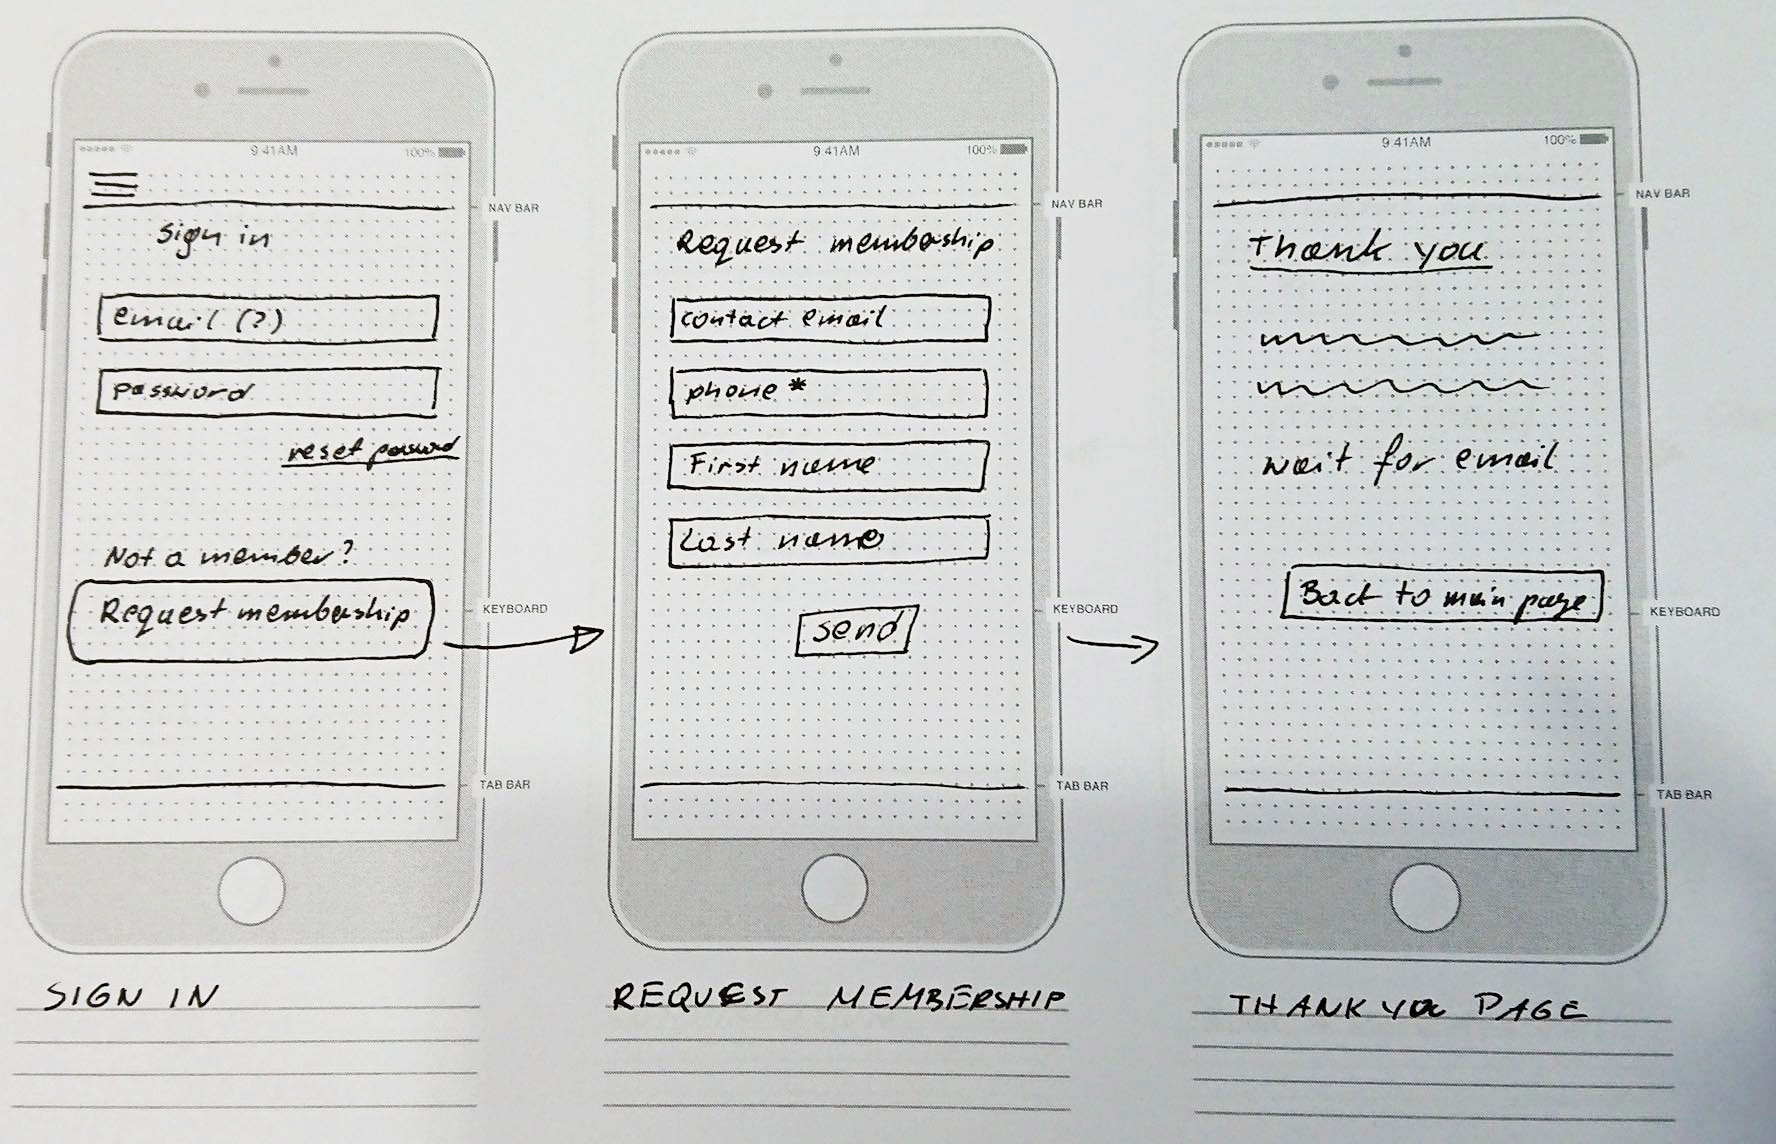 9:41AM 100%
NAV BAR
Sign in
email (?)
password
reset passwrd
Not a member?
Request membership
KEYBOARD
TAB BAR
SIGN IN
9:41AM 100%
NAV BAR
Request membership
contact email
phone *
First name
Last name
send
KEYBOARD
TAB BAR
REQUEST MEMBERSHIP
9:41AM 100%
NAV BAR
Thank you
wait for email
Back to main page
KEYBOARD
TAB BAR
THANK YOU PAGE